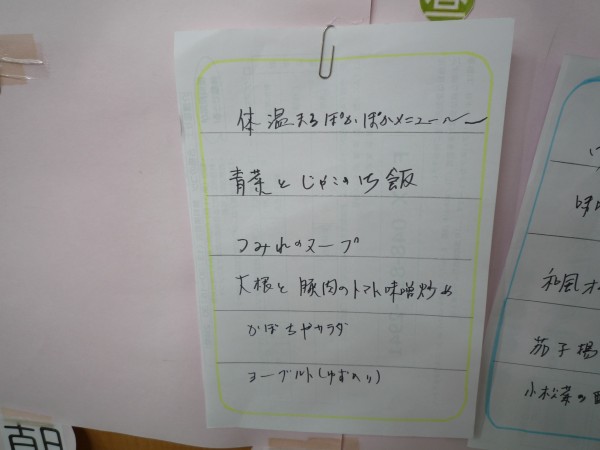 体温まるぽかぽかメニュー〜
青菜とじゃこのご飯
つみれのスープ
大根と豚肉のトマト味噌炒め
かぼちゃサラダ
ヨーグルト(ゆず入り)
和風
茄子
小松菜の
朝